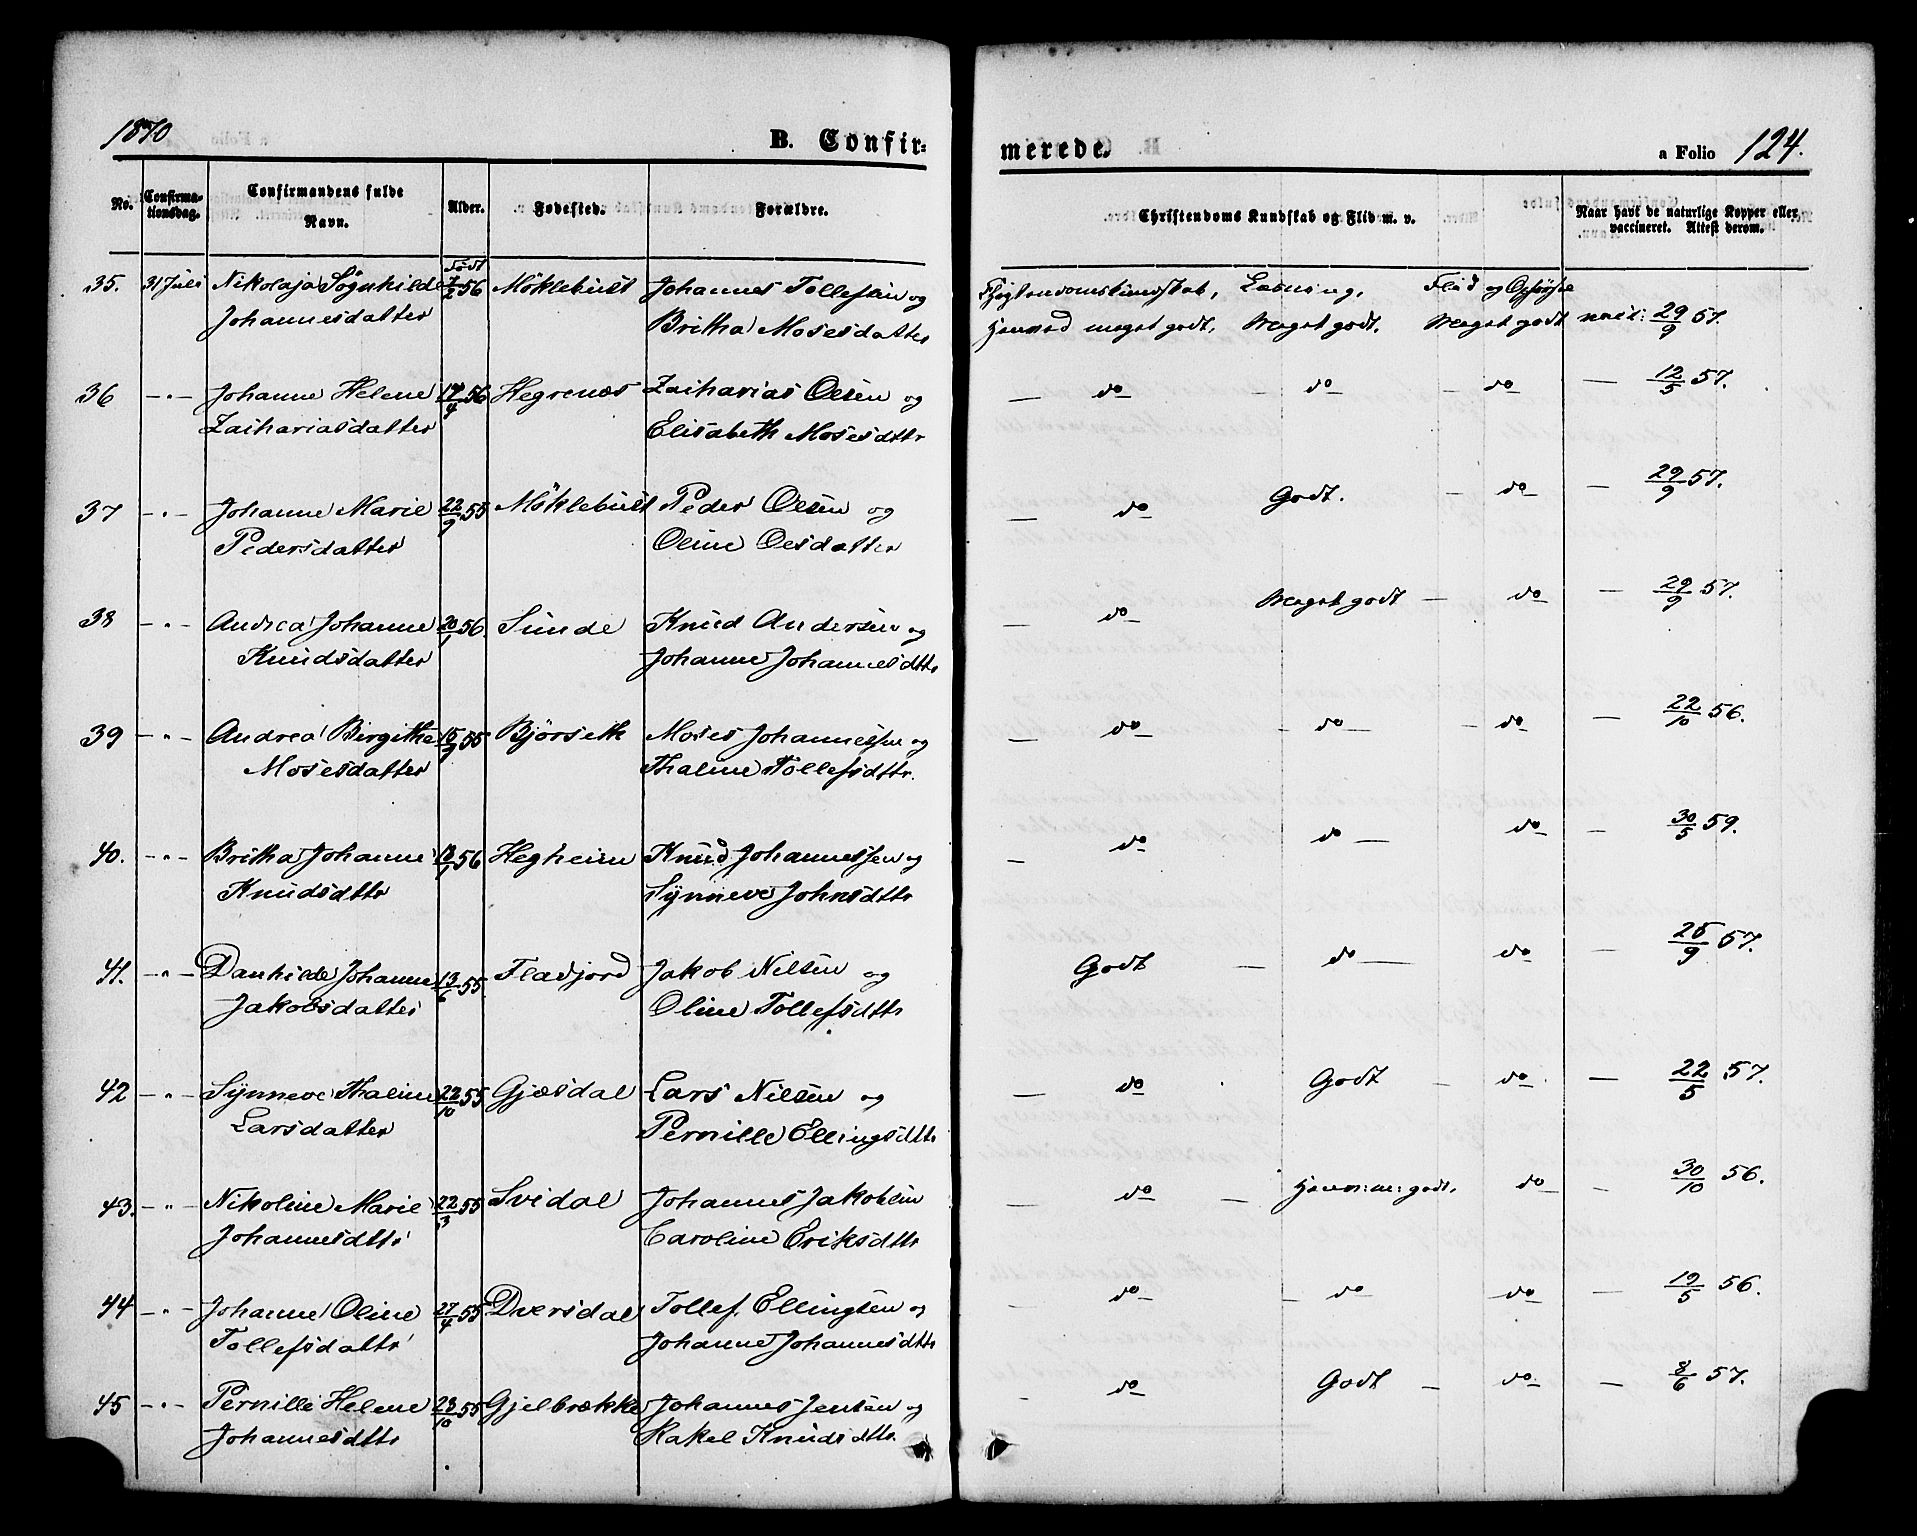 1870
B. Confir-
merede.
a Folio 124.
No.
Confirma-
tionsdag.
Confirmandens fulde
Navn.
Alder.
Fødested.
Forældre.
Christendoms Kundskab og Flid m. v.
Naar havt de naturlige Kopper eller
vaccineret. Attest derom.
35. 31 Juli Nikolaja Sögnhilde født 7/2 56 Möklebust Johannes Tollefsen og
Johannesdatter Britha Mosesdatter
Christendomskundskab, Læsning, Flid og Opførsel
meget godt, Meget godt. Meget godt 29/9 57.
36 -"- Johanne Helene 17/4 56 Hegrenæs Zacharias Olsen og — do — do — do — 12/5 57.
Zachariasdatter Elisabeth Mosesdttr
37 -"- Johanne Marie 22/9 55 Möklebust Peder Olsen og — do Godt. — do — 29/9 57.
Pedersdatter Oline Olsdatter
38 -"- Andrea Johanne 20/1 56 Sunde Knud Andersen og — do Meget godt — do — 29/9 57.
Knudsdatter Johanne Johannesdttr
39 -"- Andrea Birgitha 15/9 55 Björseth Moses Johannessen og — do — do — do — 22/10 56.
Mosesdatter Thaline Tollefsdttr.
40. -"- Britha Johanne 56 Hegheim Knud Johannessen og — do do — do — 30/5 59.
Knudsdttr Synneve Johnsdttr
41. -"- Danhilde Johanne 13/6 55 Fladjord Jakob Nilsen og Godt — do — do — 25/9 57.
Jakobsdatter Oline Tollefsdttr
42 -"- Synneve Thaline 22/10 55 Gjæsdal Lars Nilsen og — do Godt — do — 22/5 57.
Larsdatter Pernille Ellingsdttr
43. -"- Nikoline Marie 22/3 55 Svidal Johannes Jakobsen — do — godt. do — 30/10 56.
Johannesdttr Caroline Eriksdttr
44 -"- Johanne Oline 27/4 55 Dversdal Tollef Ellingsen og — do — do — do — 19/5 56.
Tollefsdattr Johanne Johannesdttr
45 -"- Pernille Helene 23/10 55 Gjelbrække Johannes Jensen og — do Godt — do — 8/6 57.
Johannesdttr Rakel Knudsdttr.